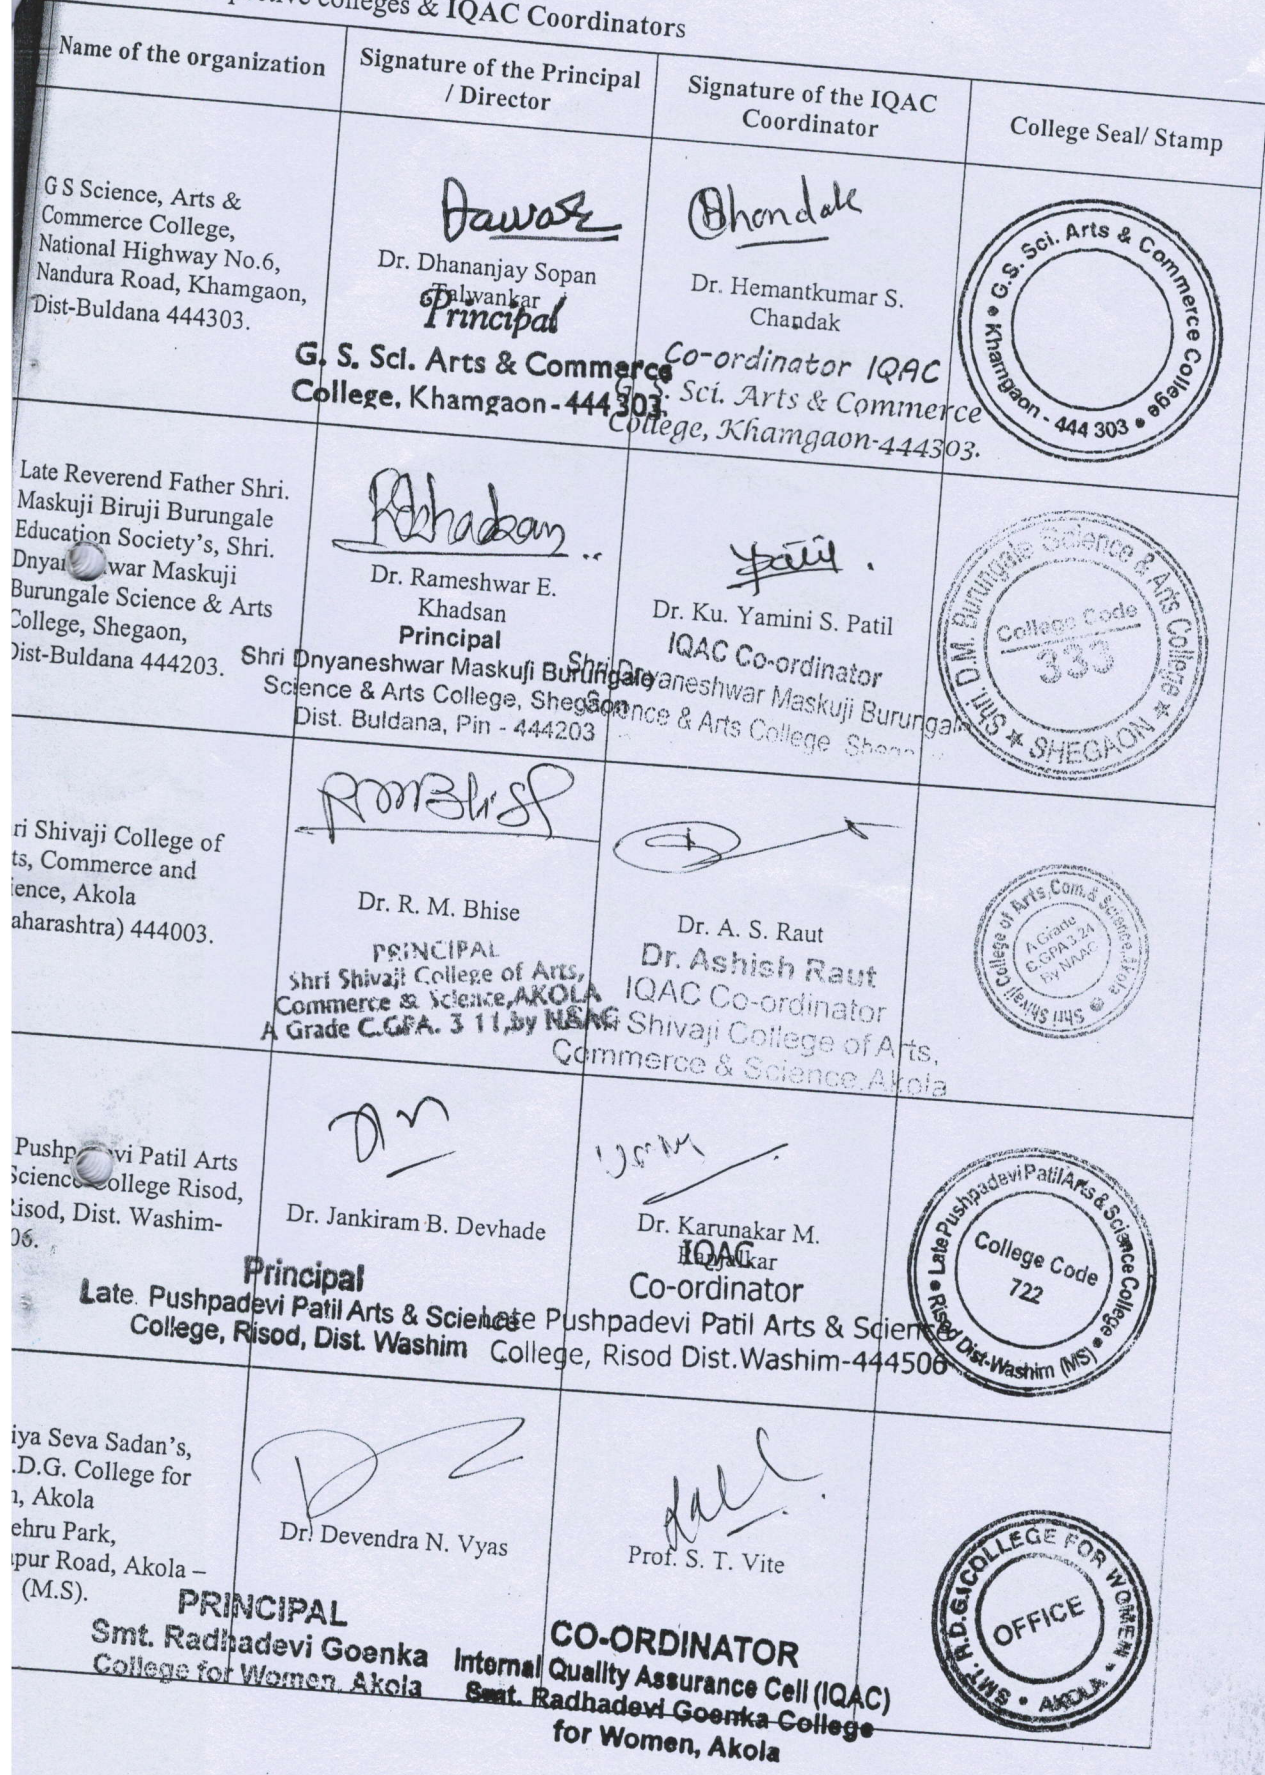 colleges & IQAC Coordinators
Name of the organization
Signature of the Principal
/ Director
Signature of the IQAC
Coordinator
College Seal/ Stamp
G S Science, Arts &
Commerce College,
National Highway No.6,
Nandura Road, Khamgaon,
Dist-Buldana 444303.
Dr. Dhananjay Sopan
Talwankar
Principal
G. S. Sci. Arts & Commerce
College, Khamgaon - 444 303.
Chandak
Dr. Hemantkumar S.
Chandak
Co-ordinator IQAC
G. S. Sci. Arts & Commerce
College, Khamgaon-444303.
G.S. Sci. Arts & Commerce College
Khamgaon - 444 303
Late Reverend Father Shri.
Maskuji Biruji Burungale
Education Society's, Shri.
Dnya war Maskuji
Burungale Science & Arts
College, Shegaon,
Dist-Buldana 444203.
Dr. Rameshwar E.
Khadsan
Principal
Shri Dnyaneshwar Maskuji Burungale
Science & Arts College, Shegaon
Dist. Buldana, Pin - 444203
Patil
Dr. Ku. Yamini S. Patil
IQAC Co-ordinator
Shri Dnyaneshwar Maskuji Burungale
Science & Arts College
Shri. D.M. Burungale Science & Arts College
SHEGAON
College Code
333
ri Shivaji College of
ts, Commerce and
ience, Akola
aharashtra) 444003.
RMBhise
Dr. R. M. Bhise
PRINCIPAL
Shri Shivaji College of Arts,
Commerce & Science, AKOLA
A Grade C.GPA. 3 11, by NAAC
Dr. A. S. Raut
Dr. Ashish Raut
IQAC Co-ordinator
Shivaji College of Arts,
Commerce & Science, Akola
Shri Shivaji College of Arts, Com.& Science, Akola
A Grade
C.GPA 3.24
By NAAC
Pushp vi Patil Arts
Science College Risod,
Risod, Dist. Washim-
06.
Dr. Jankiram B. Devhade
Principal
Late. Pushpadevi Patil Arts & Science
College, Risod, Dist. Washim
Dr. Karunakar M.
IQAC
Co-ordinator
Late Pushpadevi Patil Arts & Science
College, Risod Dist.Washim-444506
Late Pushpadevi Patil Arts & Science College
Risod Dist-Washim (MS)
College Code
722
iya Seva Sadan's,
.D.G. College for
n, Akola
ehru Park,
pur Road, Akola –
(M.S).
Dr. Devendra N. Vyas
PRINCIPAL
Smt. Radhadevi Goenka
College for Women, Akola
Prof. S. T. Vite
CO-ORDINATOR
Internal Quality Assurance Cell (IQAC)
Smt. Radhadevi Goenka College
for Women, Akola
SMT. R.D.G. COLLEGE FOR WOMEN
AKOLA
OFFICE